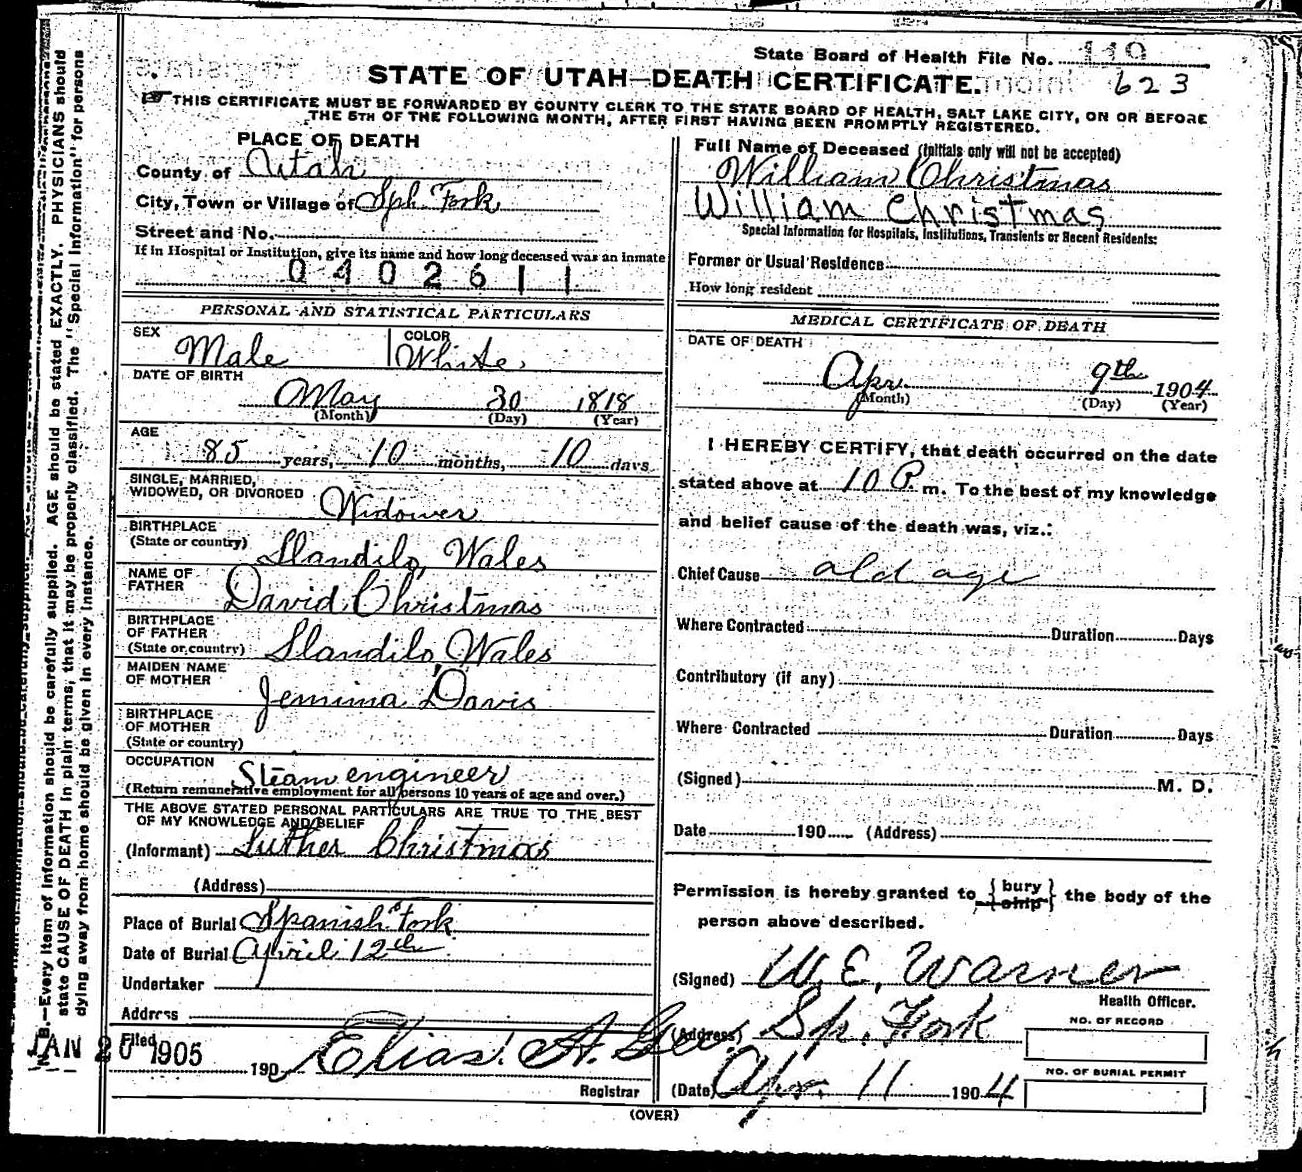 State Board of Health File No. 119
STATE OF UTAH—DEATH CERTIFICATE.
623
THIS CERTIFICATE MUST BE FORWARDED BY COUNTY CLERK TO THE STATE BOARD OF HEALTH, SALT LAKE CITY, ON OR BEFORE
THE 5TH OF THE FOLLOWING MONTH, AFTER FIRST HAVING BEEN PROMPTLY REGISTERED.
PLACE OF DEATH
County of Utah
City, Town or Village of Sph. Fork
Street and No.
If in Hospital or Institution, give its name and how long deceased was an inmate
0402611
PERSONAL AND STATISTICAL PARTICULARS
SEX Male
COLOR White
DATE OF BIRTH
May 30 1818
(Month) (Day) (Year)
AGE
85 years, 10 months, 10 days
SINGLE, MARRIED,
WIDOWED, OR DIVORCED Widower
BIRTHPLACE
(State or country) Llandilo, Wales
NAME OF
FATHER David Christmas
BIRTHPLACE
OF FATHER
(State or country) Llandilo, Wales
MAIDEN NAME
OF MOTHER Jemima Davis
BIRTHPLACE
OF MOTHER
(State or country)
OCCUPATION Steam engineer
(Return remunerative employment for all persons 10 years of age and over.)
THE ABOVE STATED PERSONAL PARTICULARS ARE TRUE TO THE BEST
OF MY KNOWLEDGE AND BELIEF
(Informant) Luther Christmas
(Address)
Place of Burial Spanish Fork
Date of Burial April 12th
Undertaker
Address
Filed
JAN 20 1905
190 Elias A. Gee
Registrar
Full Name of Deceased (Initials only will not be accepted)
William Christmas
William Christmas
Special Information for Hospitals, Institutions, Transients or Recent Residents:
Former or Usual Residence
How long resident
MEDICAL CERTIFICATE OF DEATH
DATE OF DEATH
Apr. 9th 1904
(Month) (Day) (Year)
I HEREBY CERTIFY, that death occurred on the date
stated above at 10 P m. To the best of my knowledge
and belief cause of the death was, viz.:
Chief Cause old age
Where Contracted Duration Days
Contributory (if any)
Where Contracted Duration Days
(Signed) M. D.
Date 190 (Address)
Permission is hereby granted to {bury
ship} the body of the
person above described.
(Signed) W. E. Warner
Health Officer.
(Address) Sp. Fork
NO. OF RECORD
(Date) Apr. 11 1904
NO. OF BURIAL PERMIT
(OVER)
N. B.—Every item of information should be carefully supplied. AGE should be stated EXACTLY. PHYSICIANS should
state CAUSE OF DEATH in plain terms, that it may be properly classified. The "Special Information" for persons
dying away from home should be given in every instance.